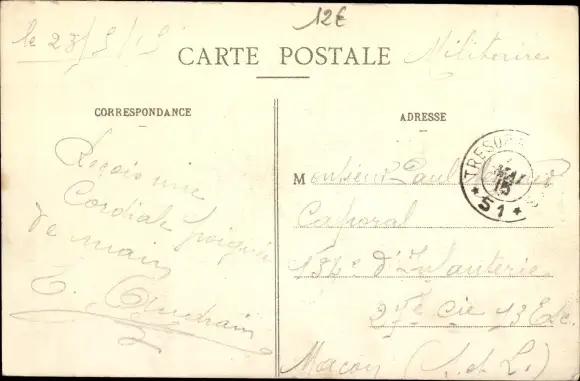 12€
le 23/5/15
CARTE POSTALE
Militaire
CORRESPONDANCE
ADRESSE
Reçois une
Cordiale poignée
de main
TRESOR
MAI
15
* 51 *
Monsieur Paul
Caporal
134e d'Infanterie
Cie 13 Esc.
Macon (S. et L.)